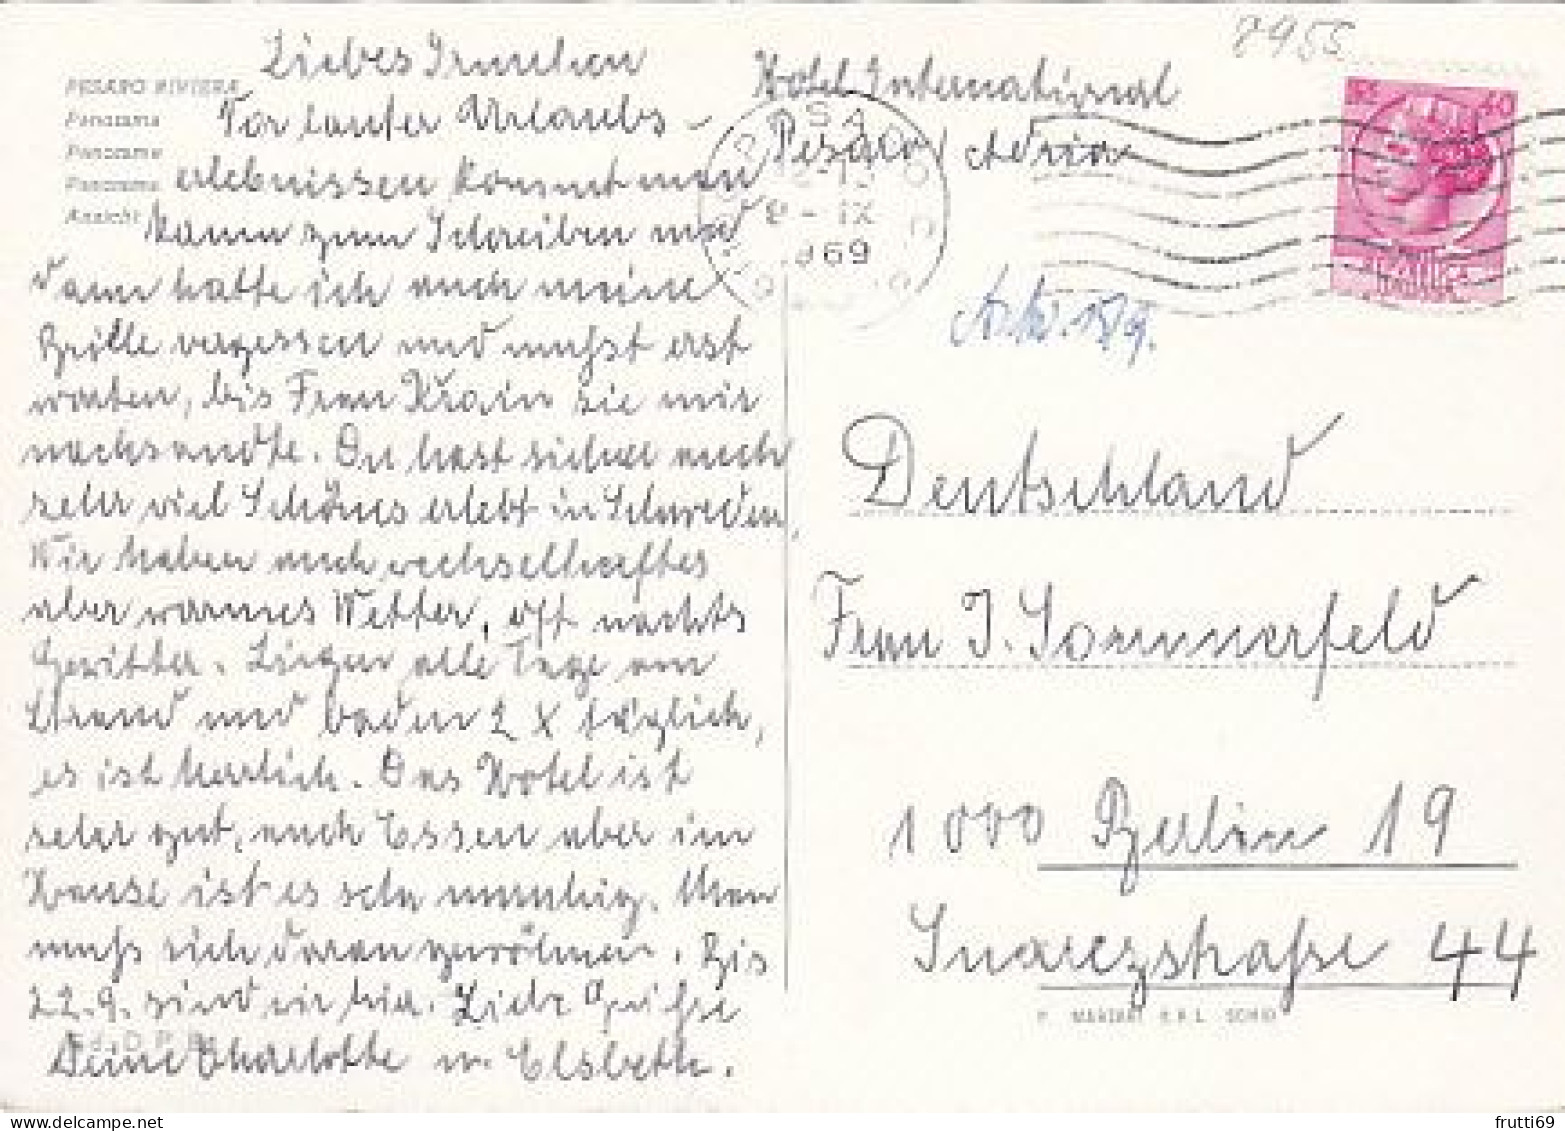 7955
Liebes Irmchen
Vor lauter Urlaubs-
erlebnissen kommt man
kaum zum Schreiben und
dann hatte ich auch meine
Brille vergessen und mußt erst
warten, bis Frau Krain sie mir
nachsandte. Du hast sicher auch
sehr viel Schönes erlebt in Schweden,
Wir haben auch wechselhaftes
aber warmes Wetter, oft nachts
Gewitter. Liegen alle Tage am
Strand und baden 2 x täglich,
es ist herrlich. Das Hotel ist
sehr gut, auch Essen aber im
Hause ist es sehr unruhig. Man
muß sich daran gewöhnen. Bis
22.9. sind wir hier. Liebe Grüße
Deine Charlotte u. Elsbeth.
PESARO RIVIERA
Panorama
Panorama
Panorama
Ansicht
Hotel International
Pesaro / Adria
9 - IX
1969
40
Deutschland
Frau J. Sommerfeld
1000 Berlin 19
Suarezstraße 44
frutti69